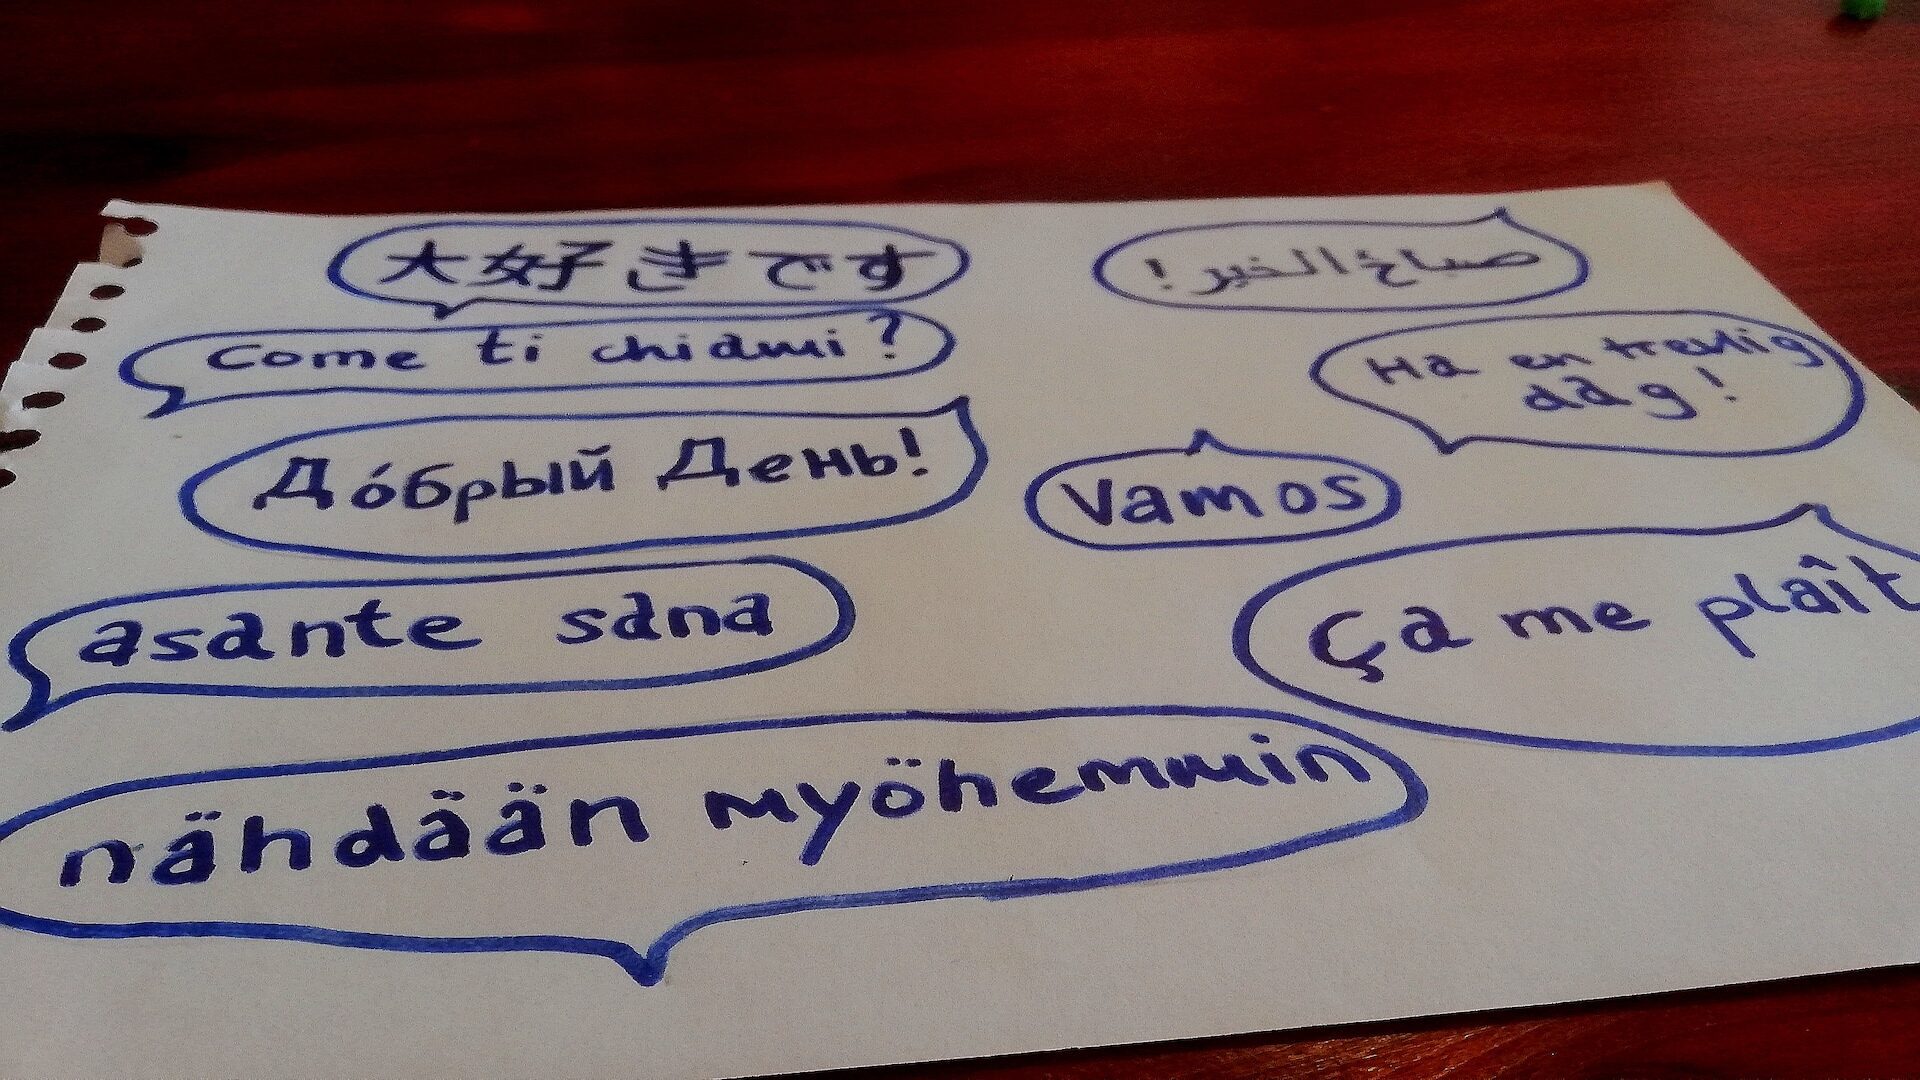 大好きです
صباح الخير!
Come ti chiami?
Ha en trevlig
dag!
Дóбрый День!
Vamos
asante sana
Ça me plaît
nähdään myöhemmin